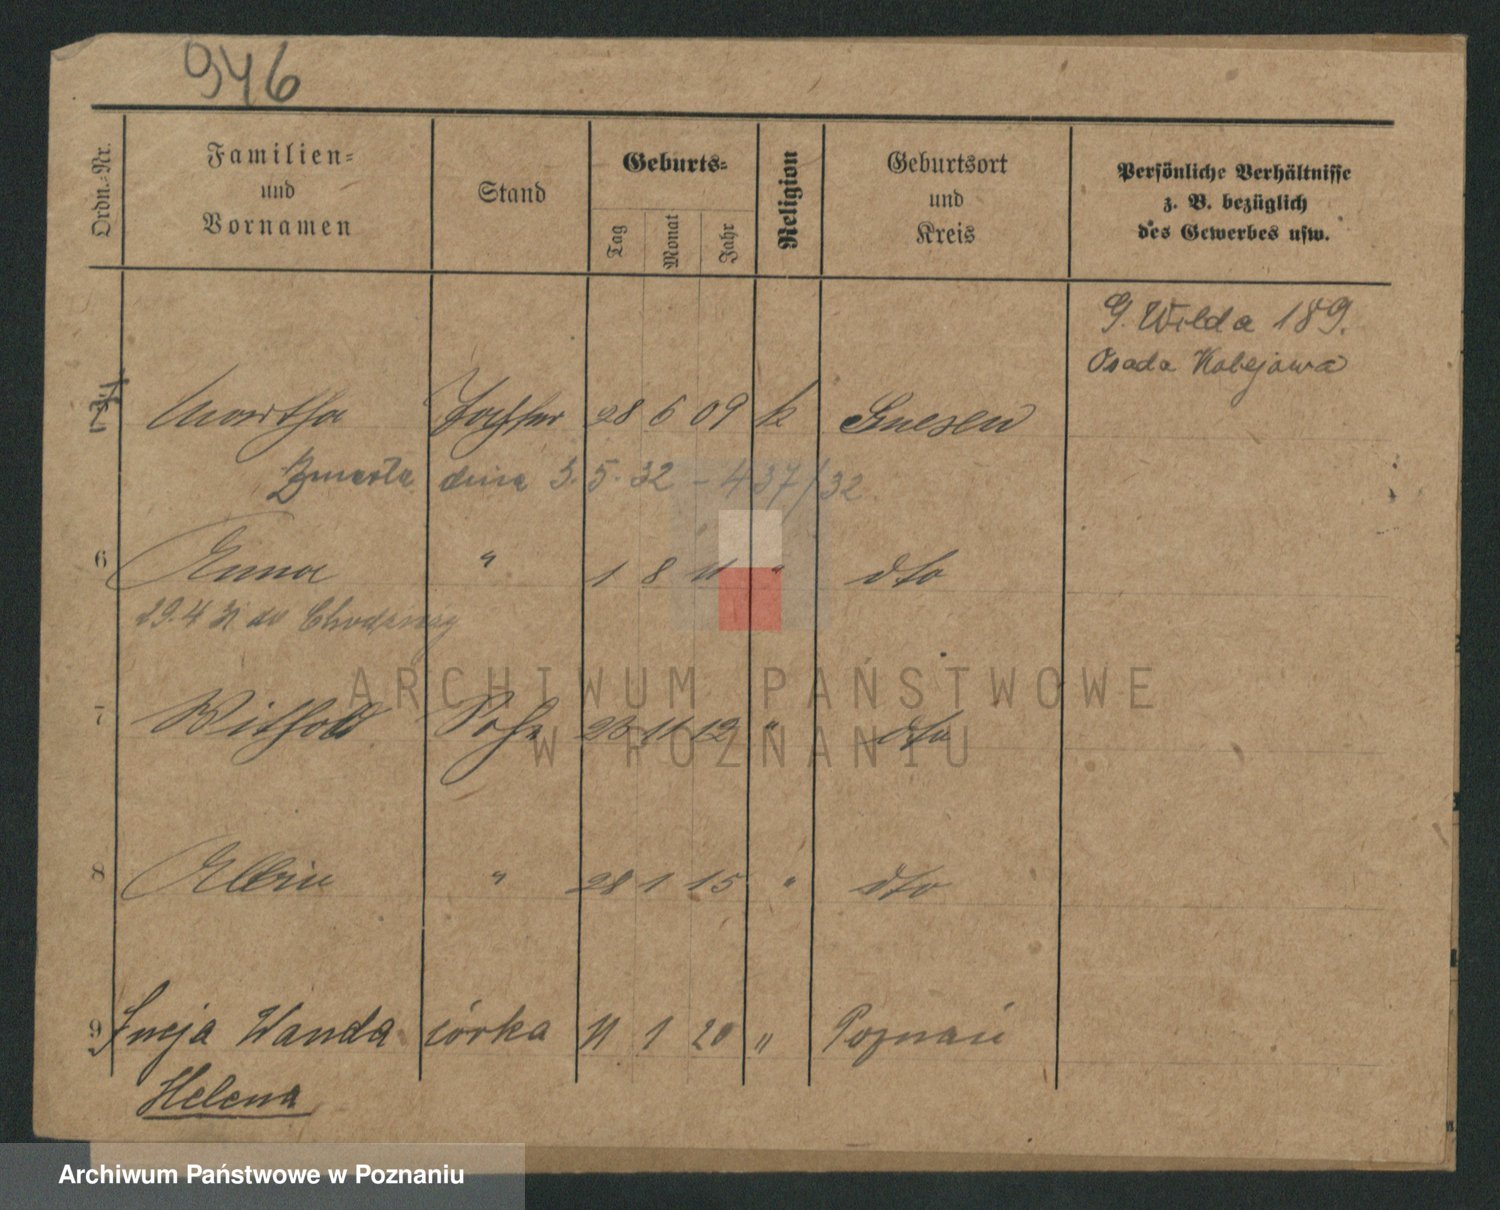 946
Ordn.-Nr.
Familien-
und
Vornamen
Stand
Geburts-
Tag
Monat
Jahr
Religion
Geburtsort
und
Kreis
Persönliche Verhältnisse
z. B. bezüglich
des Gewerbes usw.
G. Wilda 189.
Osada
Martha Tochter 28 6 09 k Gnesen
Zmarła dnia 3. 5. 32 - 437/32
6 Anna " 1 8 11 " dto
29.4 31 do Chodzieży
7 Withold Sohn 23 11 12 " dto
8 Albin " 28 1 15 " dto
9 Łucja Wanda córka 11 1 20 " Poznań
Helena
ARCHIWUM PAŃSTWOWE
W POZNANIU
Archiwum Państwowe w Poznaniu